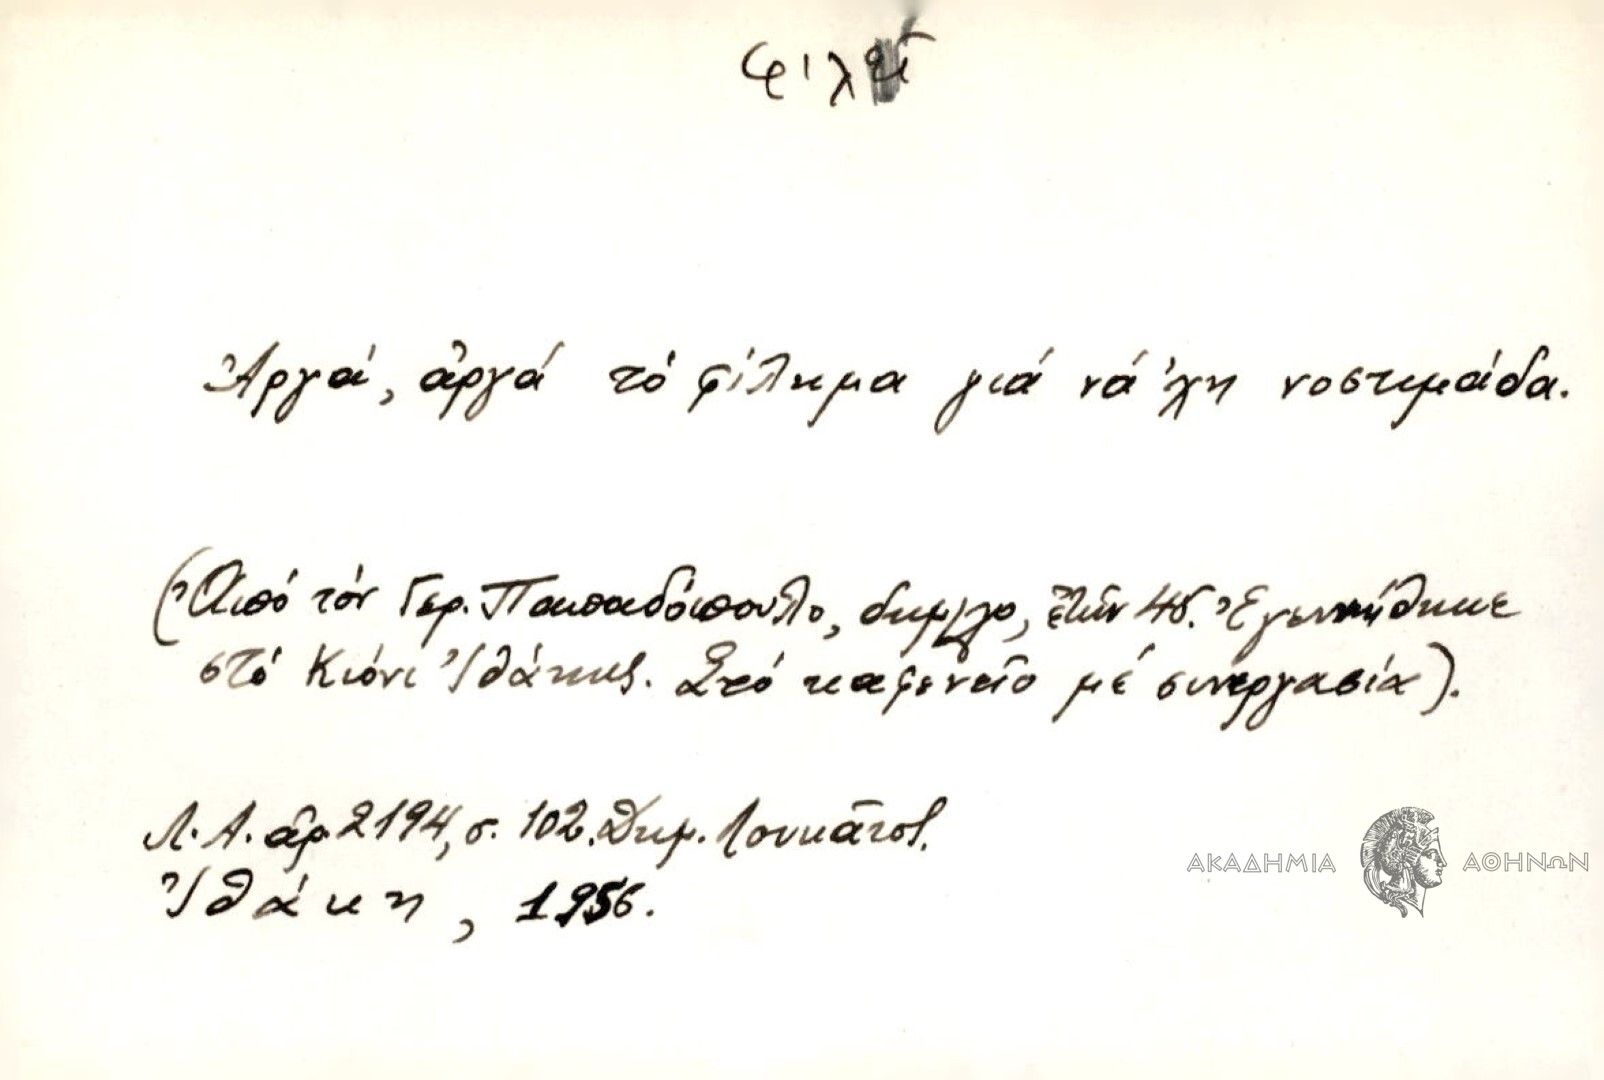 φιλῶ
Ἀργά, ἀργά τό φίλημα γιά νά 'χη νοστιμάδα.
(Ἀπό τόν Γερ. Παπαδόπουλο, δημ/λο, ἐτῶν 45. Ἐγεννήθηκε
στό Κιόνι Ἰθάκης. Στό καφενεῖο μέ συνεργασία).
Λ.Α. ἀρ. 2194, σ. 102. Δημ. Λουκᾶτος.
Ἰθάκη, 1956.
ΑΚΑΔΗΜΙΑ ΑΘΗΝΩΝ